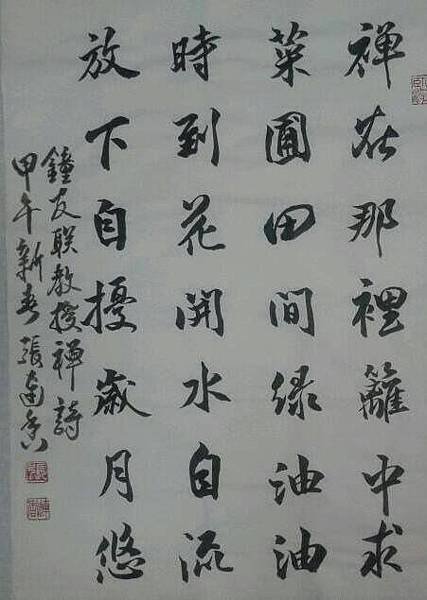 禅在那裡籬中求
菜圃田間綠油油
時到花開水自流
放下自擾歲月悠
鐘友联教授禅詩
甲午新春張